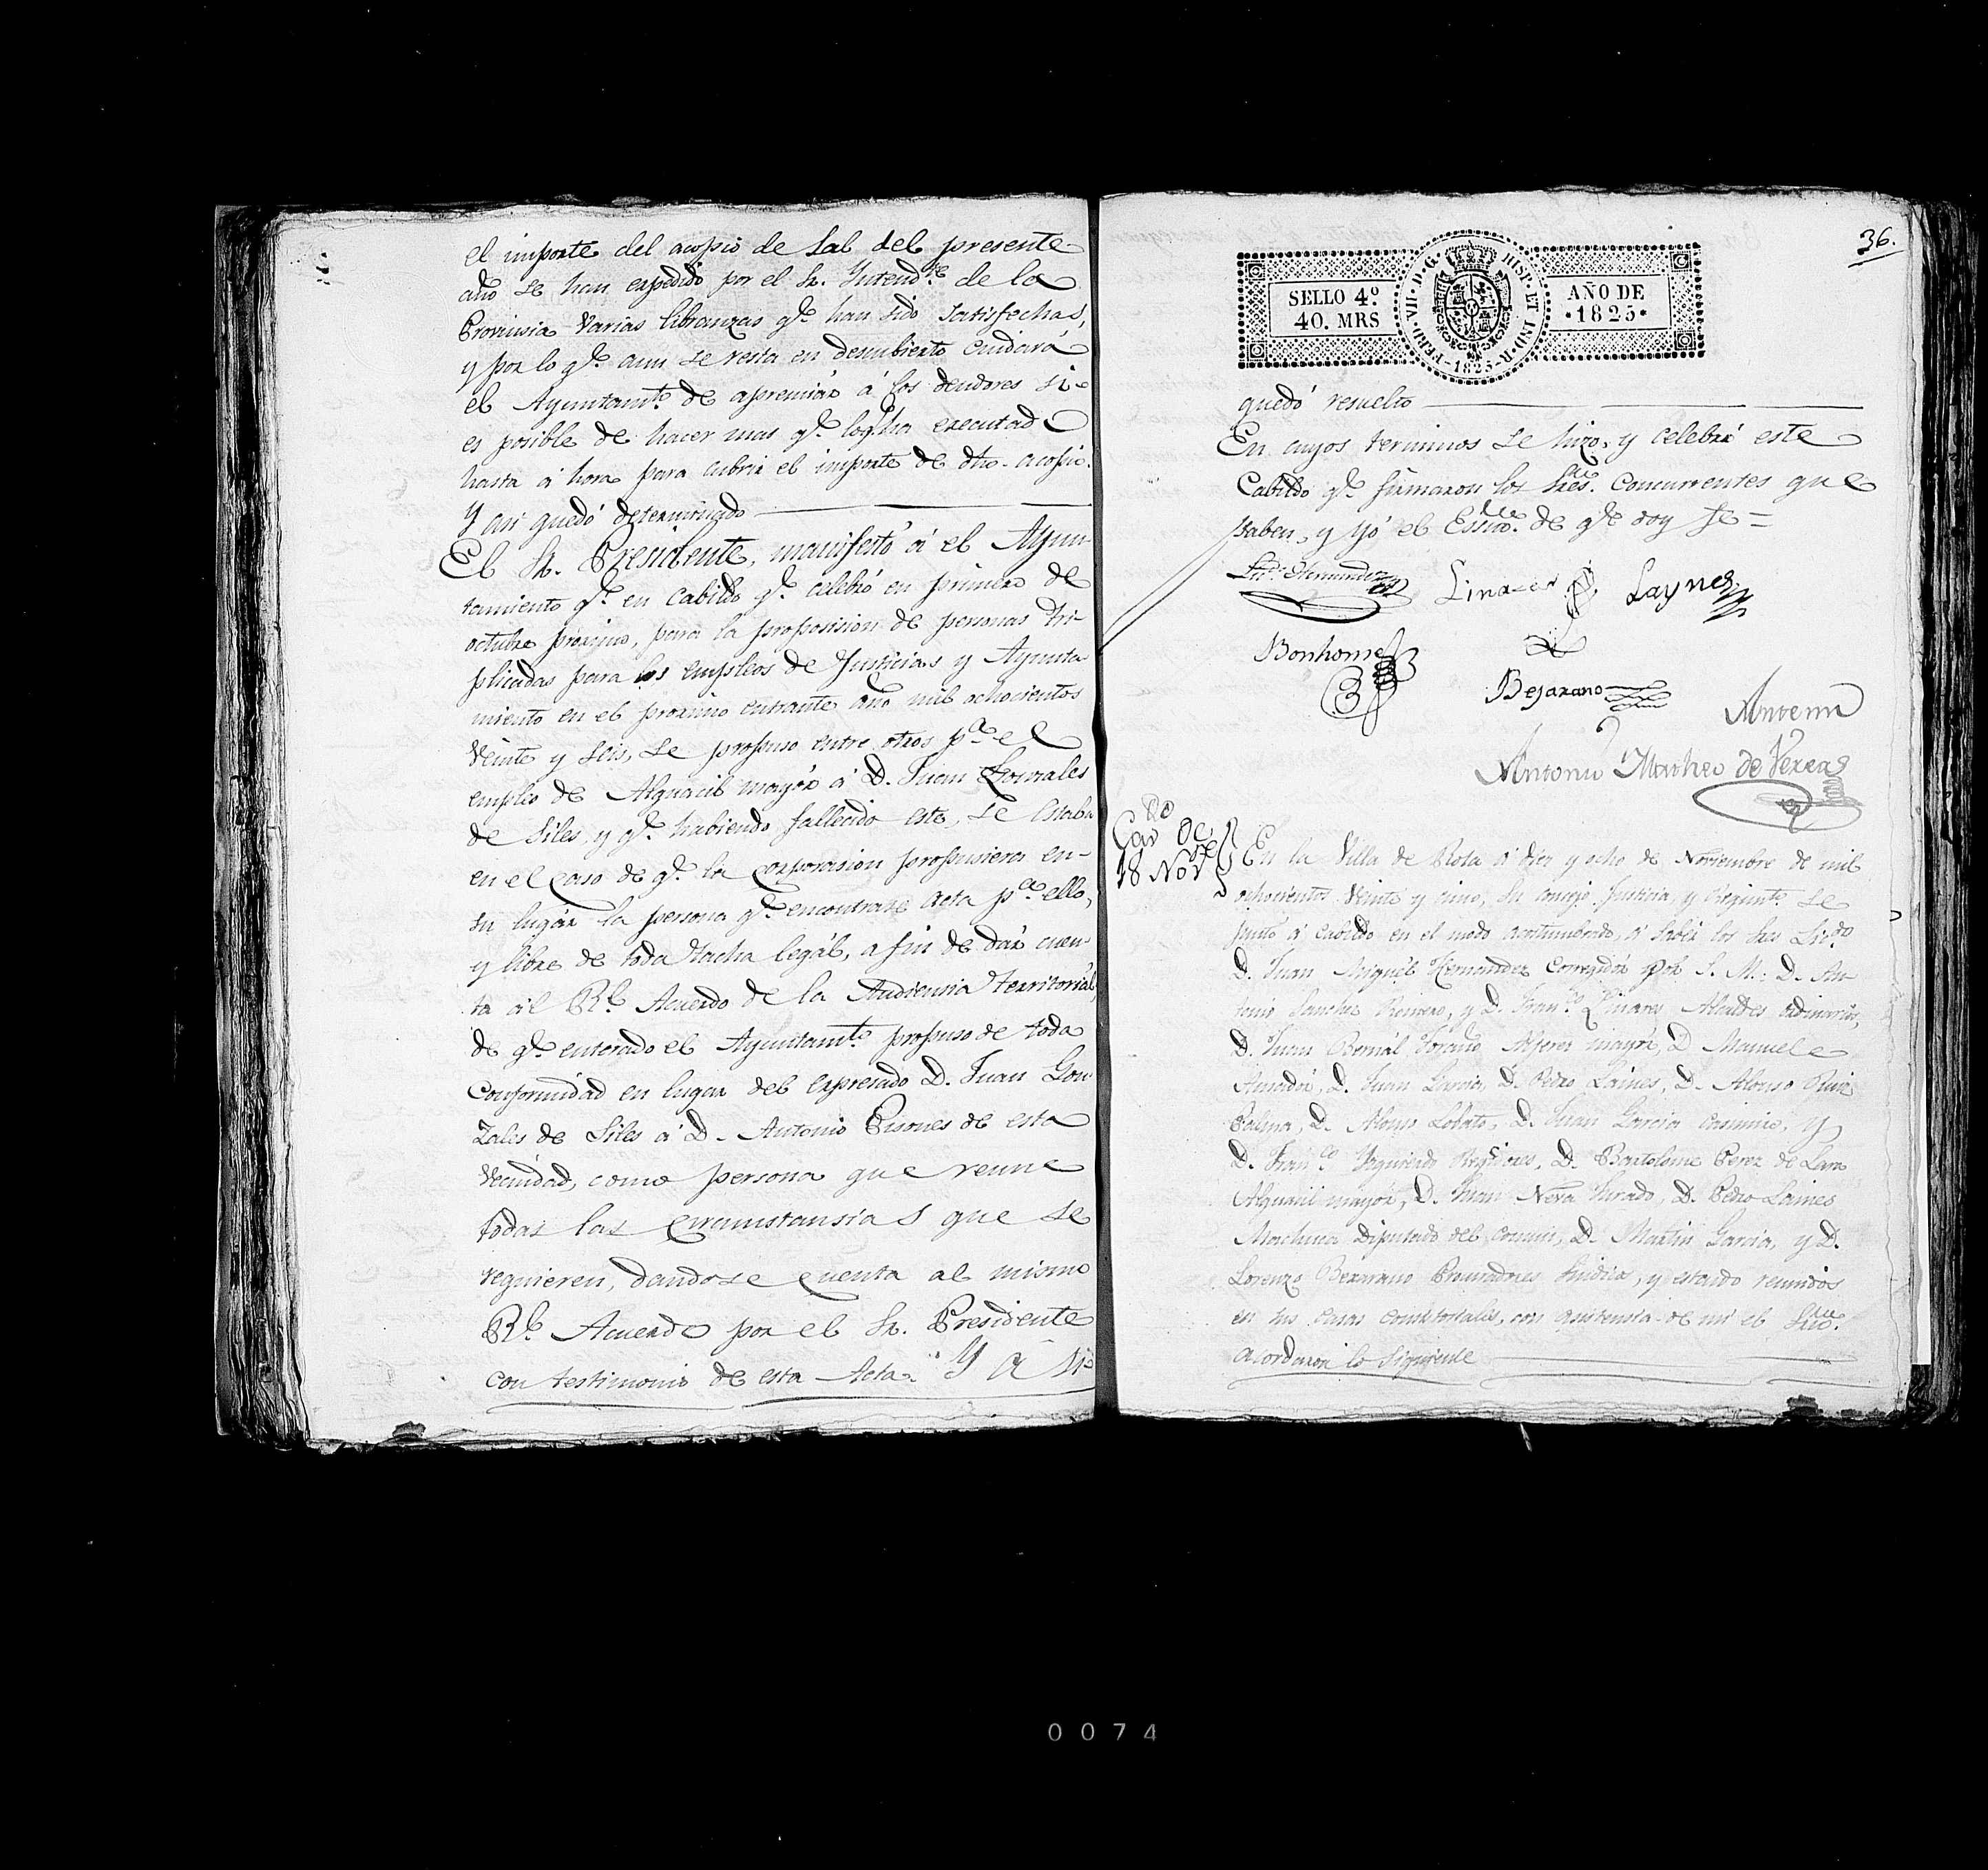 el importe del acopio de Sal del presente
año se han expedido por el Sr. Yntendte. de la
Provinsia varias libranzas qe. han sido satisfechas,
y por lo qe. aun se resta en descubierto cuidará
el Ayuntamto. de apremiar á los deudores si
es posible de hacer mas qe. lo qe. ha executado
hasta á hora para cubrir el importe de dho. acopio.
Y asi quedó determinado
El Sr. Presidente, manifestó á el Ayun-
tamiento qe. en Cabildo qe. celebró en primero de
octubre proximo, para la proposision de personas tri-
plicadas para los empleos de Justicias y Ayunta
miento en el proximo entrante año mil ochocientos
veinte y seis, se propuso entre otros pa. el
empleo de Alguacil mayór á D. Juan Gonzales
de Siles, y qe. habiendo fallecido este, se estaba
en el caso de qe. la corporasion propusiera en
su lugár la persona qe. encontrare acta pa. ello,
y libre de toda tacha legál, a fin de dár cuen-
ta al Rl. Acuerdo de la Audiensia territorial,
de qe. enterado el Ayuntamto. propuso de toda
conformidad en lugar del expresado D. Juan Gon
zales de Siles á D. Antonio Pisones de esta
vecindad, como persona que reune
todas las circunstansias que se
requieren, dandose cuenta al mismo
Rl. Acuerdo por el Sr. Presidente
con testimonio de esta Acta. Y asi
36.
SELLO 4º
40. MRS
FERD. VII. D. G. HISP. ET IND. R.
1825
AÑO DE
1825
quedó resuelto
En cuyos terminos se hizo, y celebró este
Cabildo qe. firmaron los Sres. Concurrentes que
saben, y yó el Essno. de qe. doy fe =
Licdo. Hernandez Linares Laynez
Bonhome
Bejarano
Antemi
Antonio Matheo de Vexa
Cavdo de
18 Nove
En la Villa de Rota á diez y ocho de Noviembre de mil
ochocientos veinte y cinco, su consejo Justicia, y Regimto. se
juntó á cavildo en el modo acostumbrado, á saber los Sres Licdo
D. Juan Miguél Hernandez Corregidór por S. M.: D. An-
tonio Sanchez Romero, y D. Franco. Linares Alcaldes ordinarios,
D. Juan Bernál Alferes mayór, D. Manuel
Amadór, D. Juan Garcia, D. Pedro Laines, D. Alonso Ruiz
Palma, D. Alonso Lobato, D. Juan Garcia Casimiro, y
D. Franco. Yzquierdo Regidores, D. Bartolome Perez de Lara
Alguacil mayór, D. Juan Neva Jurado, D. Pedro Laines
Machuca Diputado del comun, D. Martin Garcia, y D.
Lorenzo Bexarano Procuradores Sindicos, y estando reunidos
en sus casas consistoriales, con asistensia de mi el Essno.
acordaron lo siguiente
0074